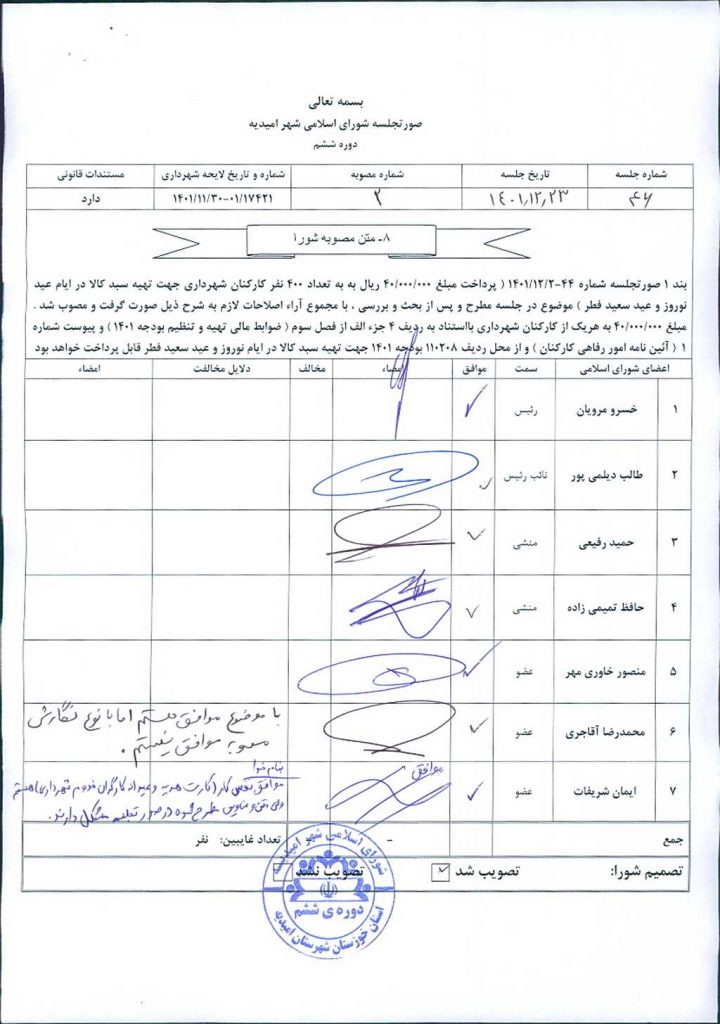 بسمه تعالی
صورتجلسه شورای اسلامی شهر امیدیه
دوره ششم
شماره جلسه تاریخ جلسه شماره مصوبه شماره و تاریخ لایحه شهرداری مستندات قانونی
۴۶ ۱۴۰۱،۱۲،۲۳ ۲ ۱۴۰۱/۱۱/۳۰-۰۱/۱۷۴۲۱ دارد
۸- متن مصوبه شورا
بند ۱ صورتجلسه شماره ۴۴-۱۴۰۱/۱۲/۲ ( پرداخت مبلغ ۴۰/۰۰۰/۰۰۰ ریال به به تعداد ۴۰۰ نفر کارکنان شهرداری جهت تهیه سبد کالا در ایام عید
نوروز و عید سعید فطر ) موضوع در جلسه مطرح و پس از بحث و بررسی ، با مجموع آراء اصلاحات لازم به شرح ذیل صورت گرفت و مصوب شد .
مبلغ ۴۰/۰۰۰/۰۰۰ به هریک از کارکنان شهرداری بااستناد به ردیف ۴ جزء الف از فصل سوم ( ضوابط مالی تهیه و تنظیم بودجه ۱۴۰۱ ) و پیوست شماره
۱ ( آئین نامه امور رفاهی کارکنان ) و از محل ردیف ۱۱۰۲۰۸ بودجه ۱۴۰۱ جهت تهیه سبد کالا در ایام نوروز و عید سعید فطر قابل پرداخت خواهد بود
اعضای شورای اسلامی سمت موافق امضاء مخالف دلایل مخالفت امضاء
۱ خسرو مرویان رئیس
۲ طالب دیلمی پور نائب رئیس
۳ حمید رفیعی منشی
۴ حافظ تمیمی زاده منشی
۵ منصور خاوری مهر عضو
۶ محمدرضا آقاجری عضو
با موضوع موافق هستم اما با نوع نگارش
مصوبه موافق نیستم .
۷ ایمان شریفات عضو موافق
بنام خدا
موافق کار (کارت هدیه و عیدانه کارگران خدوم شهرداری) هستم
ولی متن و عناوین مطرح شده در صورتجلسه مشکل دارند.
جمع - تعداد غایبین: نفر
تصمیم شورا: تصویب شد تصویب نشد
شورای اسلامی شهر امیدیه
دوره ی ششم
استان خوزستان شهرستان امیدیه